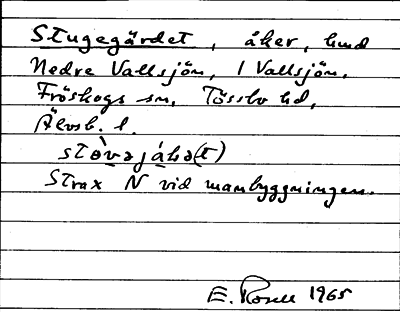 Stugegärdet, åker, hmd
Nedre Vallsjön, 1 Vallsjön,
Fröskogs sn, Tössbo hd,
Älvsb. l.
stòvəjáḷə(t)
Strax N vid manbyggningen.
E. Rosell 1965